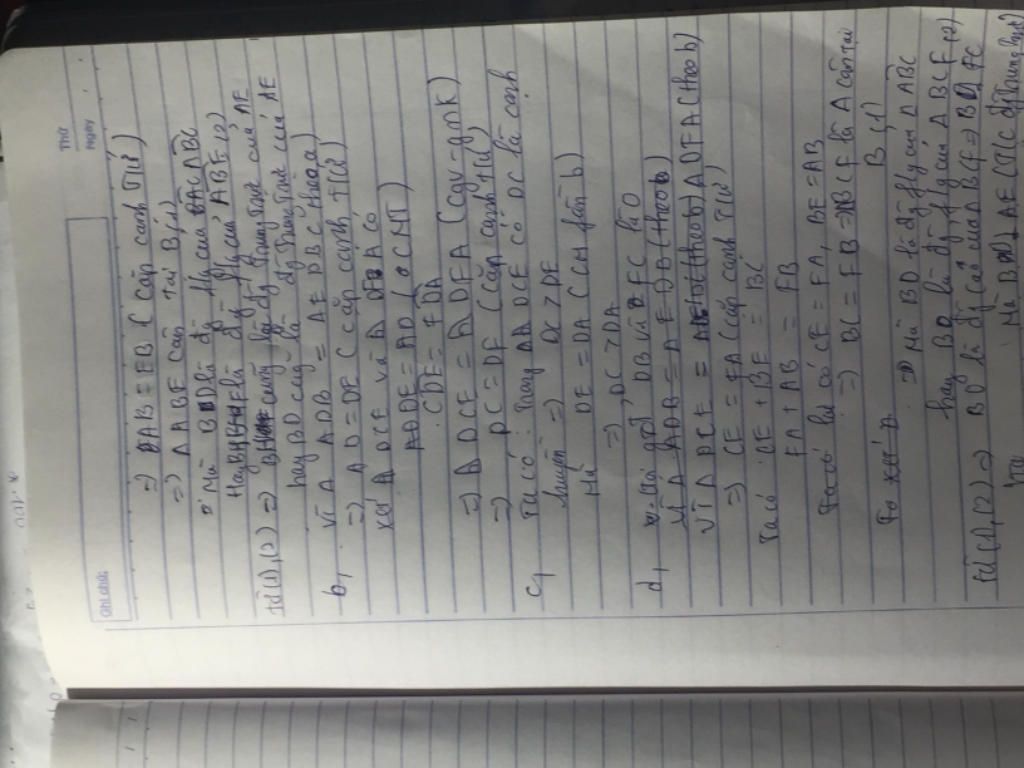 Thứ
Ngày
Ghi chú
=) AB = EB (cặp cạnh T/ứ)
=) Δ ABE cân tại B (1)
Mà BD là đg f/g của ABC
Hay là đg f/g của ABE (2)
từ (1), (2) =) cũng là đg trung trực của AE
hay BD cũng là đg trung trực của AE
b, Vì Δ ADB = Δ EDB (theo a)
=) AD = DE (cặp cạnh t/ứ)
xét Δ DCE và Δ DFA có
DE = AD (CMT)
CDE = FDA
=) Δ DCE = Δ DFA (cgv - gnk)
=) DC = DF (cặp cạnh t/ứ)
c, Ta có: Trong Δ DCE có DC là cạnh
huyền =) DC > DE
Mà DE = DA (CCM phần b)
=) DC > DA
d, gọi DB và FC là O
Vì Δ ADB = Δ EDB (theo b)
Vì Δ DCE = Δ DFA (theo b)
=) CE = FA (cặp cạnh T/ứ)
Ta có CE + BE = BC
FA + AB = FB
có CE = FA, BE = AB
=) BC = FB =) BCF là Δ cân tại
B (1)
=) Mà BD là đg f/g của Δ ABC
hay BO là đg f/g của Δ BCF (2)
từ (1), (2) =) BO là đg cao của Δ BCF =) BO ⊥ FC
Mà BD ⊥ AE (T/c đg trung trực)